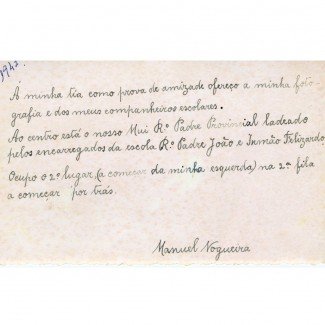 1947.
A minha tia como prova de amizade ofereço a minha foto-
grafia e dos meus companheiros escolares.
Ao centro está o nosso Mui Rº Padre Provincial ladeado
pelos encarregados da escola Rº Padre João e Irmão Felizardo,
Ocupo o 2º lugar, (a começar da minha esquerda) na 2ª fila
a começar por trás.
Manuel Nogueira